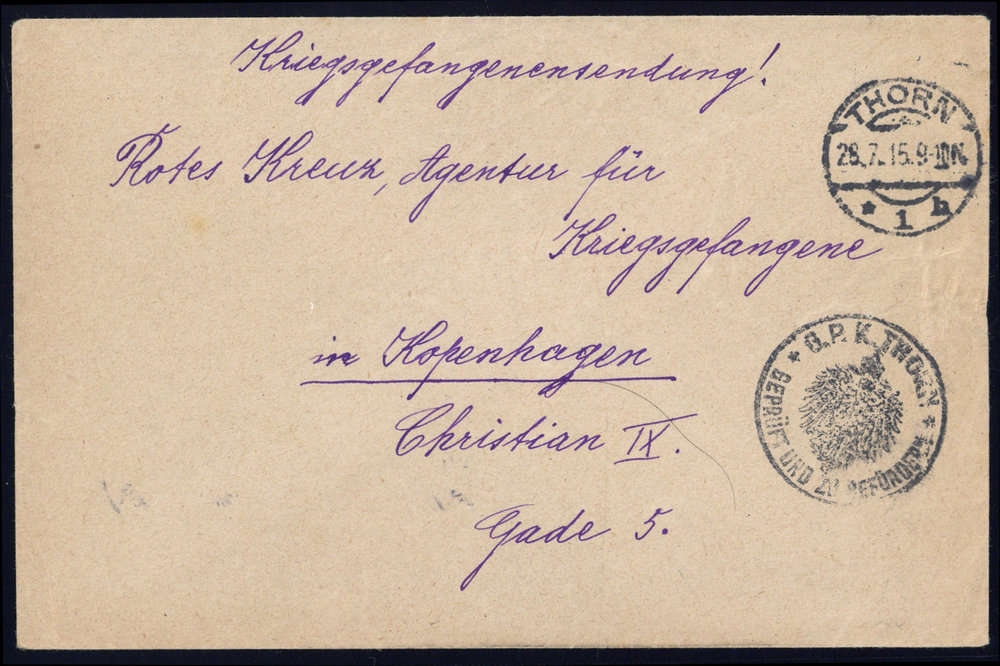 Kriegsgefangenensendung!
THORN
28.7.15.9-10N.
* 1 h
Rotes Kreuz, Agentur für
Kriegsgefangene
in Kopenhagen
Christian IX.
Gade 5.
* G.P.K. THORN *
GEPRÜFT UND ZU BEFÖRDERN